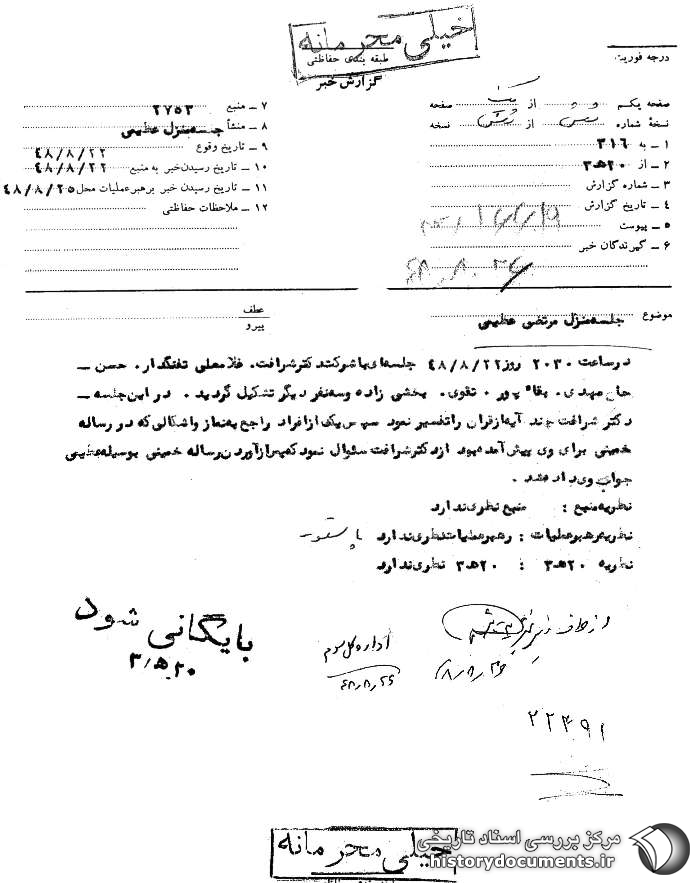 خیلی محرمانه
طبقه بندی حفاظتی
گزارش خبر
درجه فوریت
صفحه یکم از یک صفحه
نسخهٔ شماره از نسخه
۱ ــ به ۳۱۶
۲ ــ از ۲۰ هـ ۳
۳ ــ شماره گزارش
۴ ــ تاریخ گزارش
۵ ــ پیوست
۶ ــ گیرندگان خبر
۷ ــ منبع ۲۷۵۳
۸ ــ منشأ جلسه منزل عظیمی
۹ ــ تاریخ وقوع ۴۸/۸/۲۲
۱۰ ــ تاریخ رسیدن خبر به منبع ۴۸/۸/۲۲
۱۱ ــ تاریخ رسیدن خبر برهبر عملیات محل ۴۸/۸/۲۵
۱۲ ــ ملاحظات حفاظتی
موضوع جلسه منزل مرتضی عظیمی
عطف
پیرو
در ساعت ۲۰۳۰ روز ۴۸/۸/۲۲ جلسه‌ای با شرکت دکتر شرافت. غلامعلی تفنگدار. حسن ــ
حاج مهدی. بقاء پور. تقوی. بخشی زاده و سه نفر دیگر تشکیل گردید. در این جلسه ــ
دکتر شرافت چند آیه از قران را تفسیر نمود سپس یک از افراد راجع به نماز و اشکالی که در رساله
خمینی برای وی پیش آمده بود از دکتر شرافت سئوال نمود که پس از آوردن رساله خمینی بوسیله عظیمی
جواب وی داده شد.
نظریه منبع : منبع نظری ندارد
نظریه رهبر عملیات : رهبر عملیات نظری ندارد
نظریه ۲۰ هـ ۳ : ۲۰ هـ ۳ نظری ندارد
بایگانی شود
۲۰ هـ ۳
اداره کل سوم
۴۸/۸/۲۶
۲۲۴۹۱
خیلی محرمانه
مرکز بررسی اسناد تاریخی
historydocuments.ir